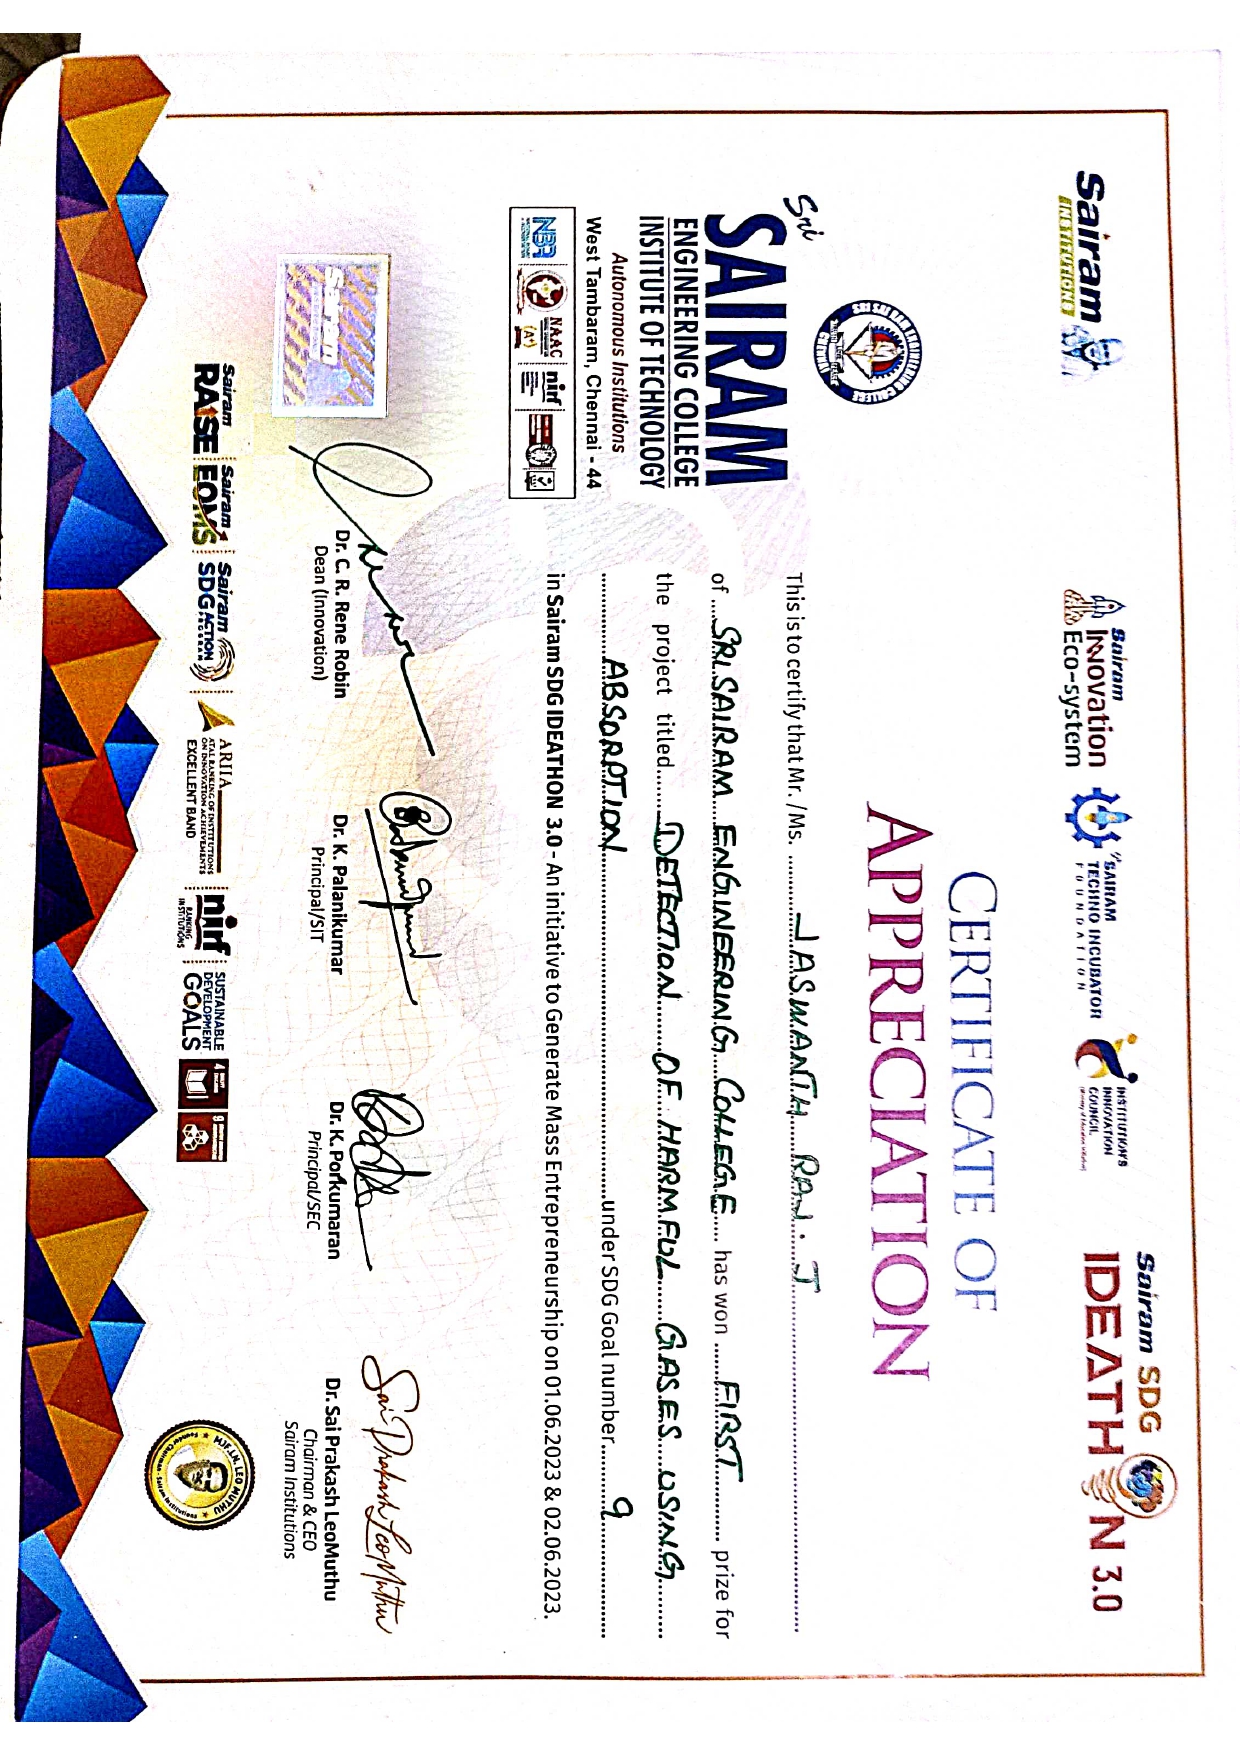 Sairam
INSTITUTIONS
Sairam
Innovation
Eco-system
SAIRAM
TECHNO INCUBATOR
FOUNDATION
INSTITUTION'S
INNOVATION
COUNCIL
(Ministry of Education Initiative)
Sairam SDG
IDEATHON 3.0
CERTIFICATE OF
APPRECIATION
SRI SAI RAM ENGINEERING COLLEGE
CHENNAI
Sri
SAIRAM
ENGINEERING COLLEGE
INSTITUTE OF TECHNOLOGY
Autonomous Institutions
West Tambaram, Chennai - 44
NBA
NAAC
(A+)
nirf
This is to certify that Mr. /Ms. JASWANTH RAJ. J
of SRI SAIRAM ENGINEERING COLLEGE has won FIRST prize for
the project titled DETECTION OF HARMFUL GASES USING
ABSORPTION under SDG Goal number 9
in Sairam SDG IDEATHON 3.0 - An initiative to Generate Mass Entrepreneurship on 01.06.2023 & 02.06.2023.
Sairam
Sai Prakash LeoMuthu
Dr. C. R. Rene Robin
Dean (Innovation)
Dr. K. Palanikumar
Principal/SIT
Dr. K. Porkumaran
Principal/SEC
Dr. Sai Prakash LeoMuthu
Chairman & CEO
Sairam Institutions
Sairam
RAISE
Sairam
EOMS
Sairam
SDG ACTION
PROGRAM
ARIIA
ATAL RANKING OF INSTITUTIONS
ON INNOVATION ACHIEVEMENTS
EXCELLENT BAND
nirf
RANKING
INSTITUTIONS
SUSTAINABLE
DEVELOPMENT
GOALS
4
9
MJF.LN. LEO MUTHU
Founder Chairman - Sairam Institutions